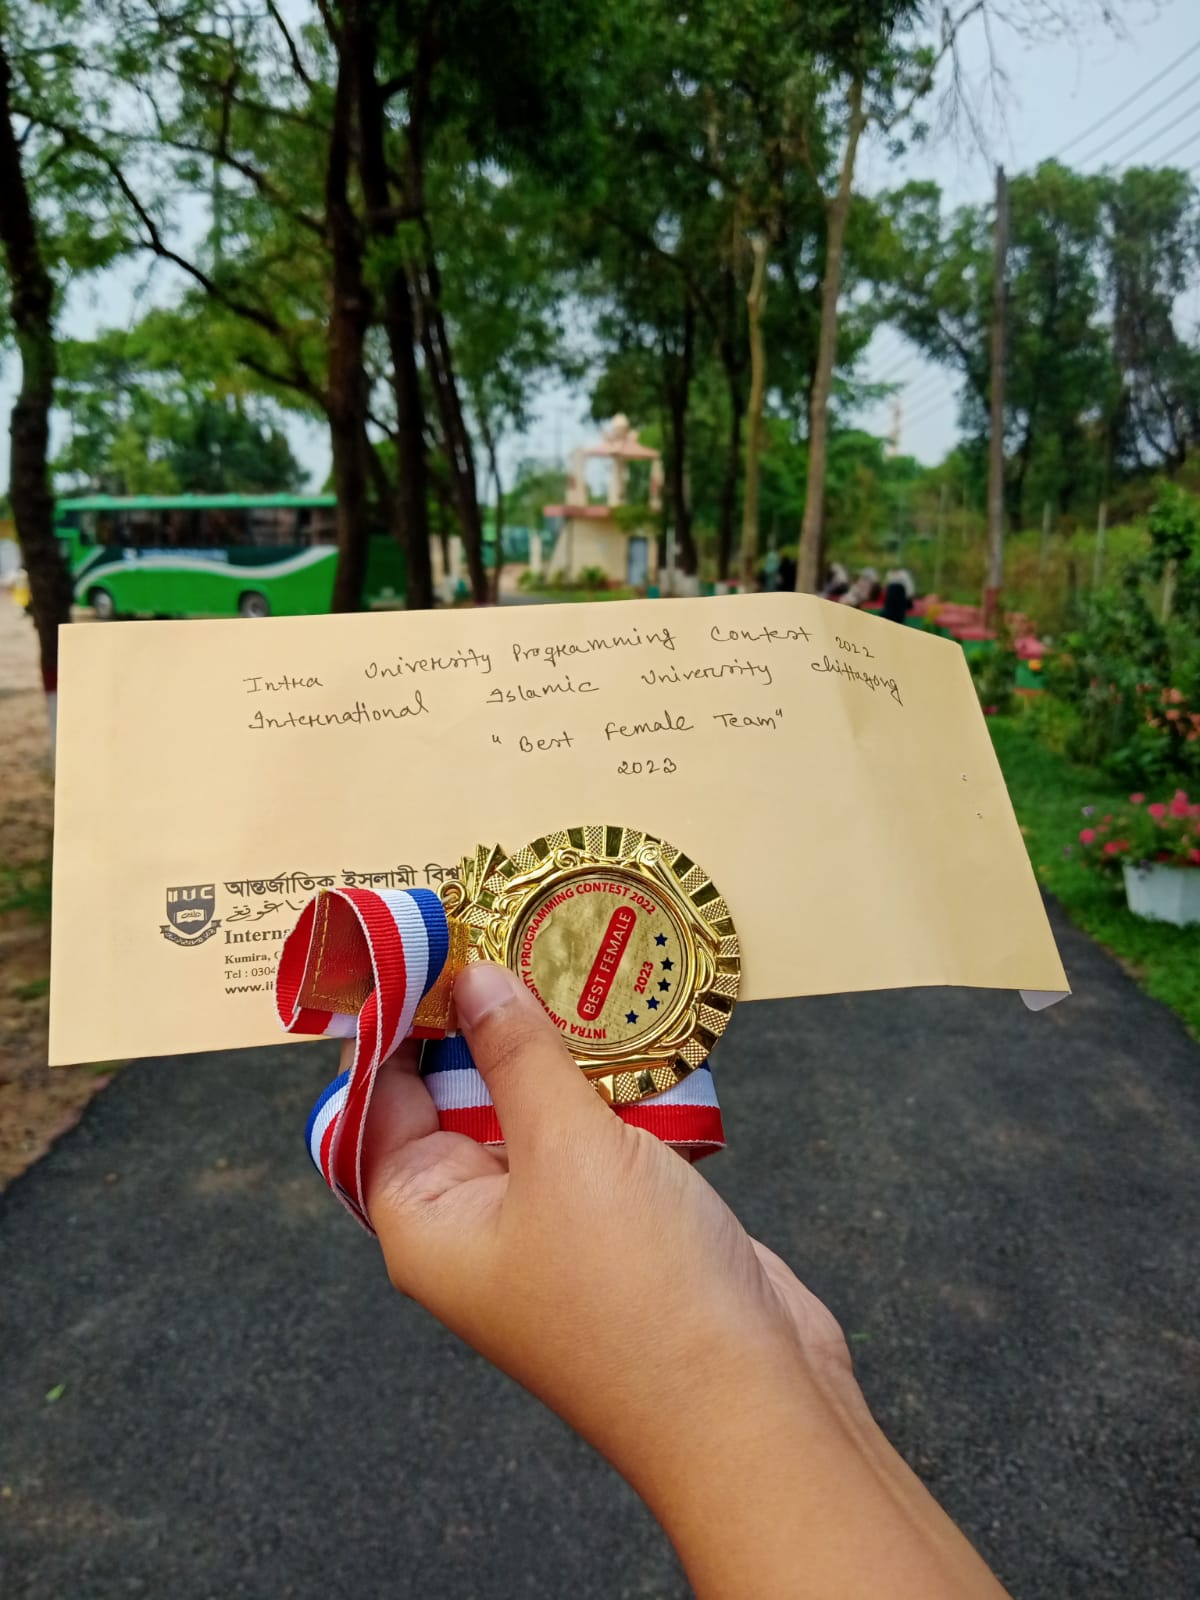 Intra University Programming Contest 2022
International Islamic University Chittagong
"Best Female Team"
2023
IIUC
আন্তর্জাতিক ইসলামী
Kumira,
Tel : 0304
www.ii
INTRA UNIVERSITY PROGRAMMING CONTEST 2022
BEST FEMALE
2023